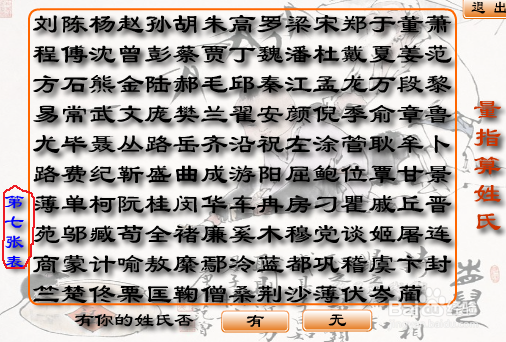 退 出
刘陈杨赵孙胡朱高罗梁宋郑于董萧
程傅沈曾彭蔡贾丁魏潘杜戴夏姜范
方石熊金陆郝毛邱秦江孟龙万段黎
易常武文庞樊兰翟安颜倪季俞章鲁
尤毕聂丛路岳齐沿祝左涂管耿牟卜
路费纪靳盛曲成游阳屈鲍位覃甘景
薄单柯阮桂闵华车冉房刁瞿戚丘晋
苑邬臧苟全褚廉奚木穆党谈姬屠连
商蒙计喻敖糜鄢冷蓝都巩稽虞卞封
竺楚佟栗匡鞠僧桑荆沙薄伏岑蔺
量指算姓氏
第七张表
有你的姓氏否
有
无